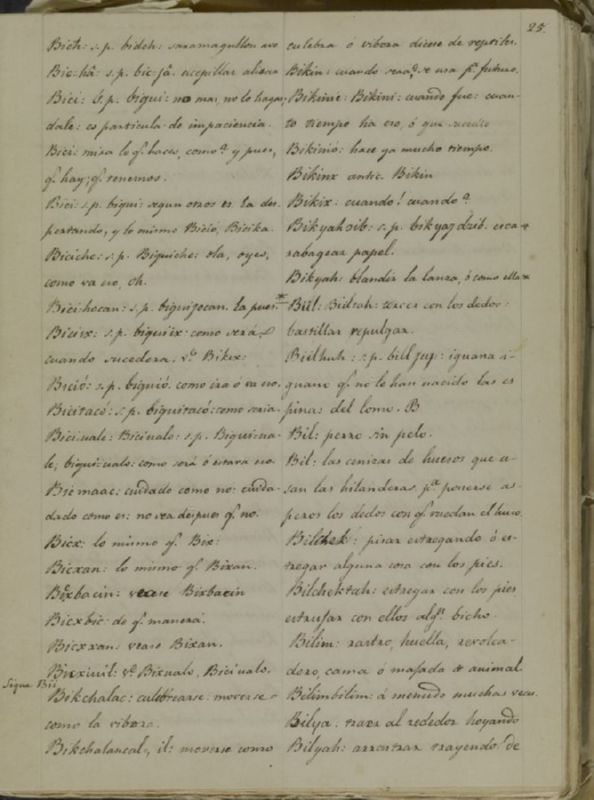 25.
Bich: s.p. bidch: saramagullon ave
Bic-hâ: s.p. bic-jâ. acepillar alisar
Bici: s.p. bigui: no mas, no lo hagas;
dale: es particula de impaciencia.
Bici: mira lo q.e haces, como? y pues,
q.e hay; q.e tenemos.
Bici: s.p. bigui: segun otros es. Ea des
pertando, y lo mismo Bició, Bicika.
Biciche: s.p. Biguiche: ola, oyes,
como va eso, oh.
Bici-hocan: s.p. biguijocan. Ea pues.
Biciix: s.p. biquiix: como será,
cuando sucedera. v.e Bikix:
Bició: s.p. biguió. como irá ó va eso.
Bicitacó: s.p. biguitacó: como seria.
Bici-uale: Bici-ualo: s.p. Bigui-ua-
le; bigui-ualo: como será ó estara eso.
Bicmaac: cuidado como no: cuida-
dado como es: no sea despues q.e no.
Bicx: lo mismo q.e Bix:
Bicxan: lo mismo q.e Bixan.
Bixbacin: vease Bixbacin
Bicxbic: de q.e manera.
Bicxxan: vease Bixan.
Bicxiuil: v.e Bixualo, Bici'ualo.
Sigue Bii
Bikchalac: culebrearse: moverse
como la vibora.
Bikchalancal, il: moverse como
culebra ó vibora dicese de reptiles.
Bikin: cuando será? se usa p.a futuro.
Bikinie: Bikini: cuando fue: cuan-
to tiempo ha eso, ó que sucedio
Bikinió: hace ya mucho tiempo.
Bikinx antic. Bikin
Bikix: cuando! cuando?
Bikyahoib: s.p. bikyagdzib. esca-
rabagear papel.
Bikyah: blandir la lanza, ó como ella
* Biil: Bidtah: torcer con los dedos:
bastillar repulgar.
Bielhuh: s.p. bill juj: iguana i-
guano q.e no le han nacido las es
pinas del lomo. B
Bil: perro sin pelo.
Bil: las cenizas de huesos que u-
san las hilanderas p.a ponerse as-
peros los dedos con q.e ruedan el huso.
Bilchek: pisar estregando ó es-
tregar alguna cosa con los pies.
Bilchektah: estregar con los pies
estrujar con ellos alg.n bicho.
Bilim: rastro, huella, revolca-
dero, cama ó majada de animal
Bilimbilim: á menudo muchas veces.
Bilya: traer al rededor hoyando
Bilyah: arrastrar trayendo de